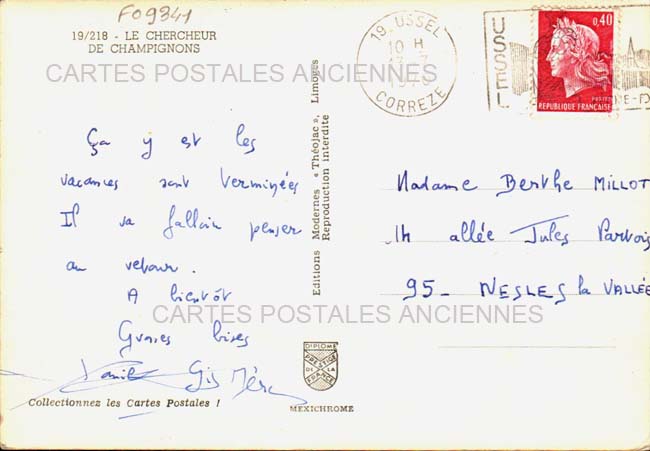 F09341
19/218 - LE CHERCHEUR
DE CHAMPIGNONS
CARTES POSTALES ANCIENNES
Ça y est les
vacances sont terminées
Il va falloir penser
au retour.
A bientôt
Grosses bises
Gis
Collectionnez les Cartes Postales !
Editions Modernes « Théojac », Limoges
Reproduction interdite
DIPLOME
PRESTIGE
DE LA
FRANCE
MEXICHROME
19 USSEL
10 H
CORREZE
USSEL
0,40
POSTES
REPUBLIQUE FRANÇAISE
Madame Berthe MILLOT
14 allée Jules
95 - NESLES la VALLÉE
CARTES POSTALES ANCIENNES